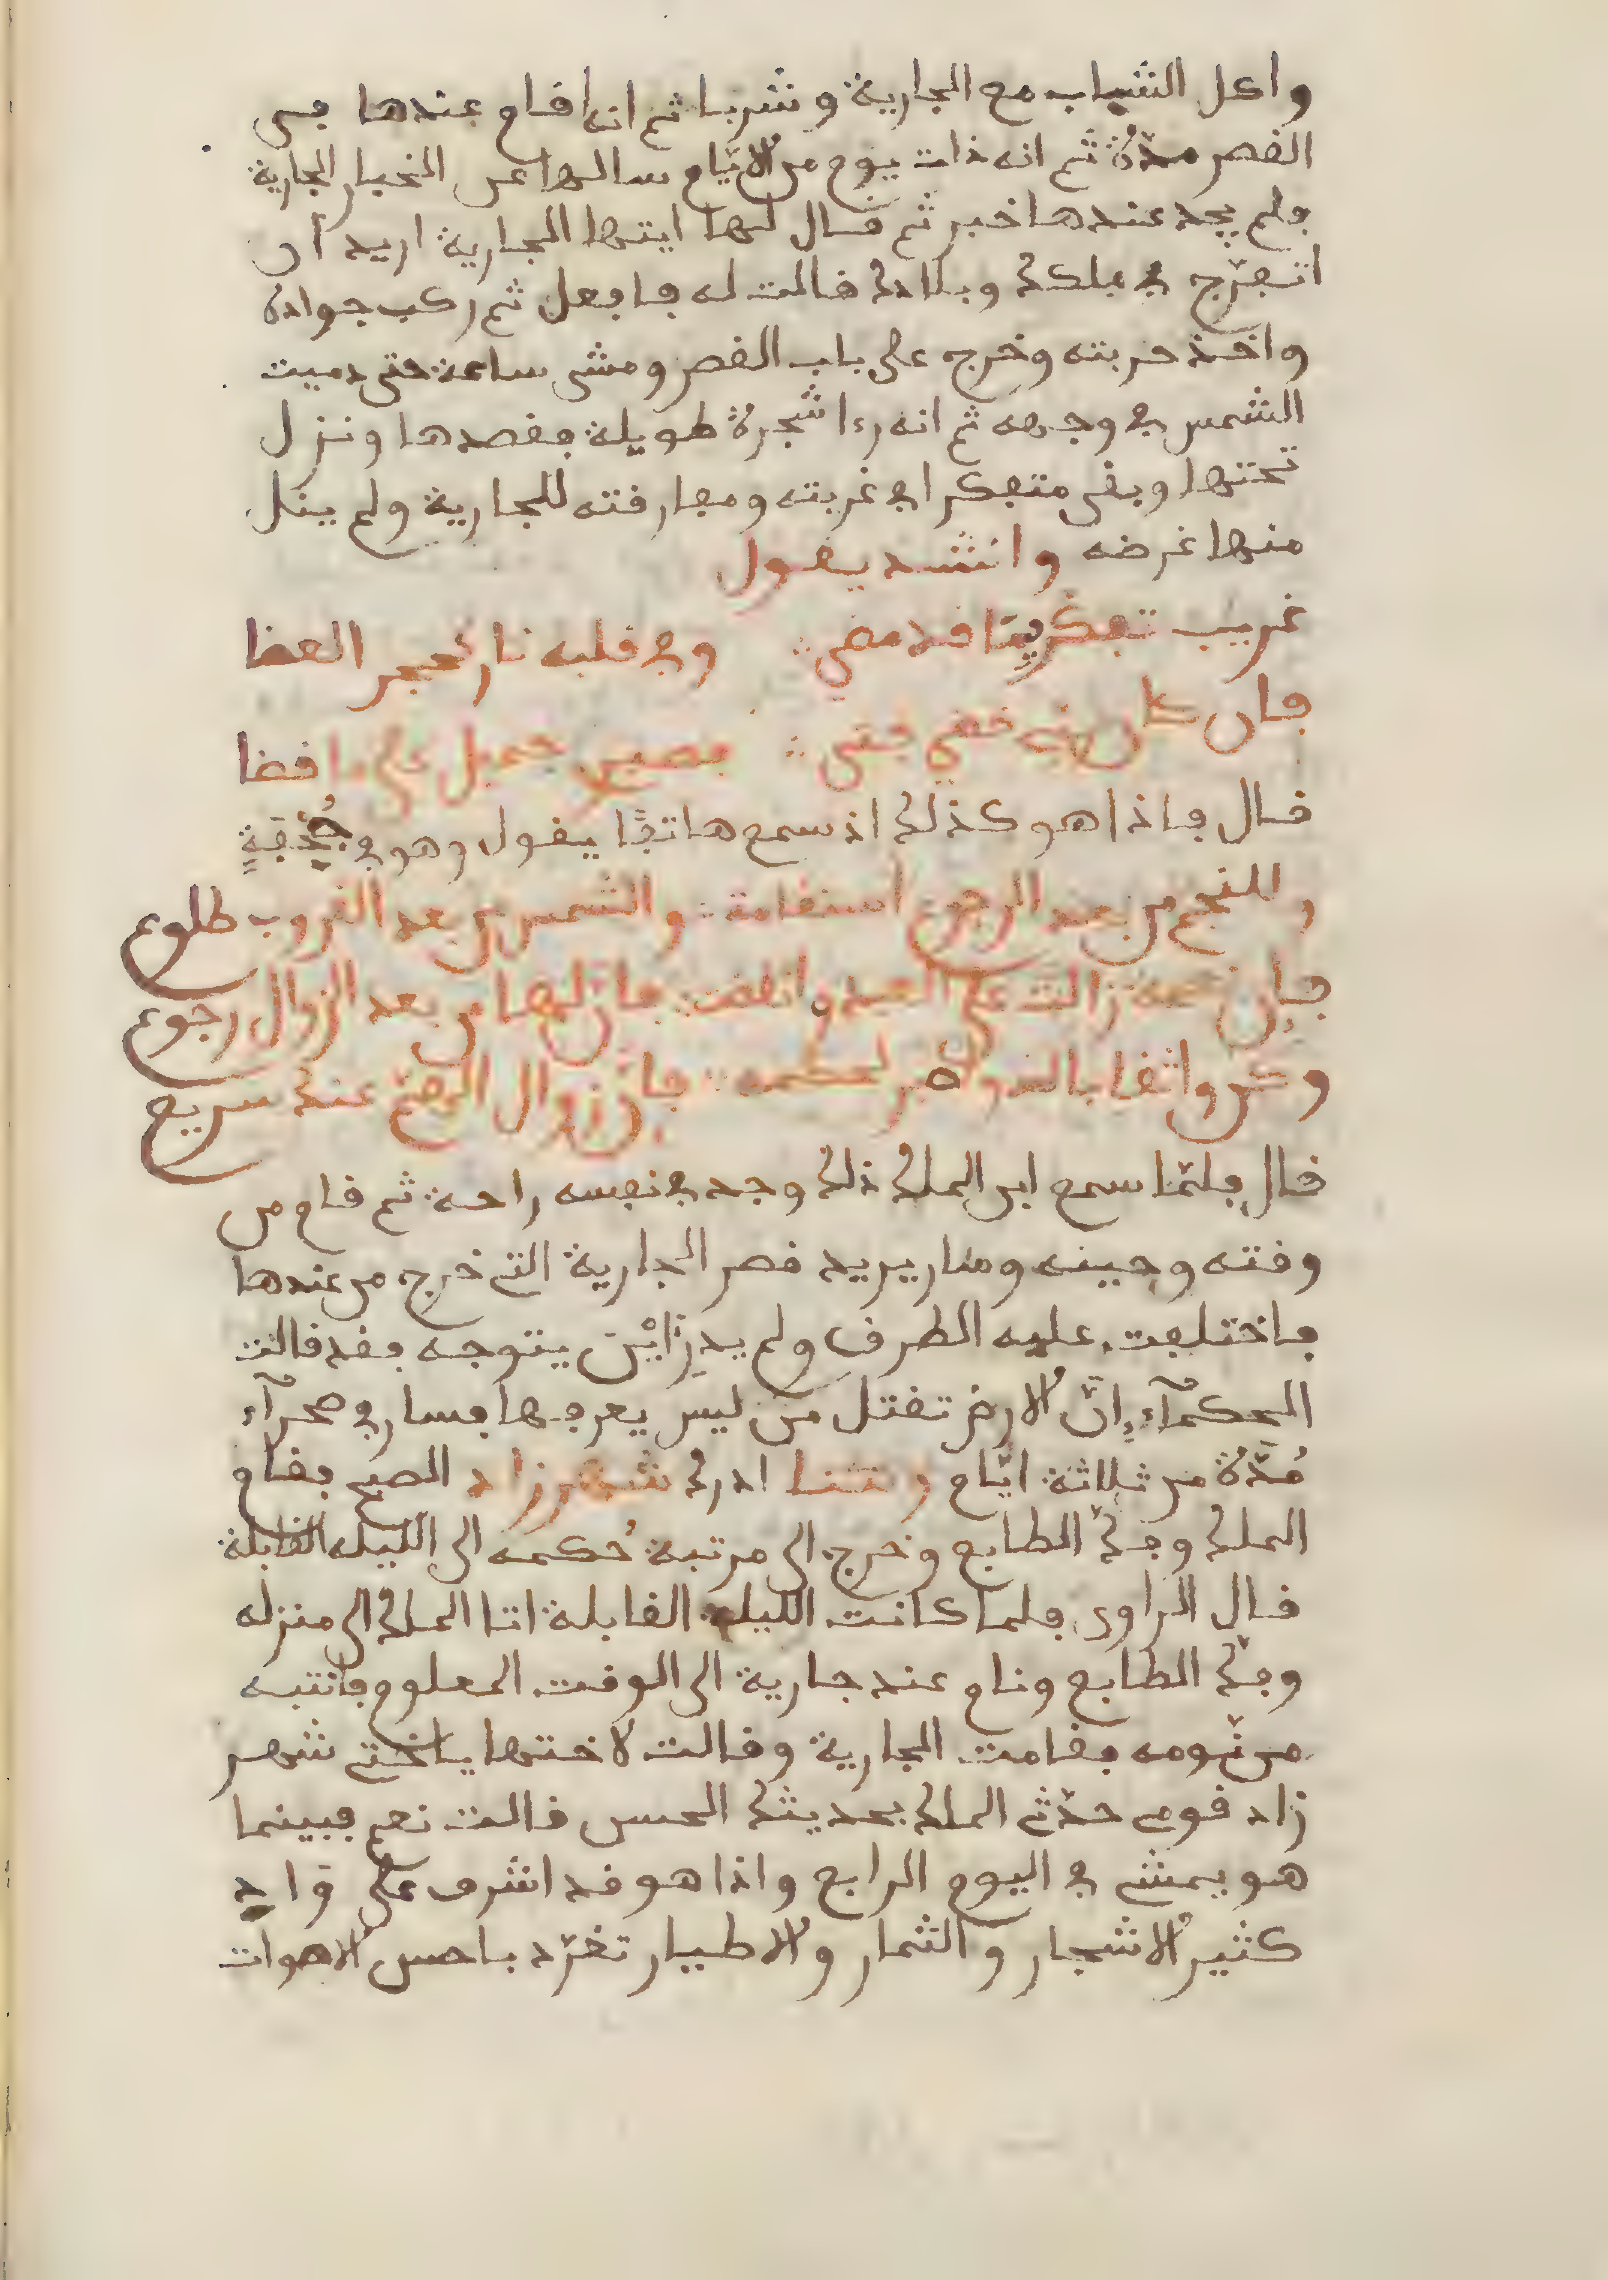 واكل الشباب مع الجارية وشربا ثم انه اقام عندها في
القصر مدّة ثم انه ذات يوم من الايّام سالها عن الخبار الجارية
فلم يجد عندها خبر ثم قال لها ايتها الجارية اريد ان
اتفرّج في ملكك وبلادك قالت له فافعل ثم ركب جواده
واخذ حربته وخرج على باب القصر ومشى ساعة حتى دميت
الشمس في وجهه ثم انه رءا شجرة طويلة فقصدها ونزل
تحتها وبقى متفكرا في غربته ومفارقته للجارية ولم ينل
منها غرضه وانشد يقول
غريب تفكر قد مضى ∴ وفي قلبه نار كجمر الغضا
فان كان فصبر جميل على ما قضا
قال فاذا هو كذلك اذ سمع هاتفًا يقول وهو في
وللنجم من بعد الرجوع استقامة ∴ والشمس من بعد الغروب طلوع
فإن نعمة زالت على العبد وانقضت ∴ فان لها من بعد الزوال رجوع
وكن واثقا بالله واصبر لحكمه ∴ فان زوال الهمّ عنك سريع
قال فلمّا سمع ابن الملك ذلك وجد في نفسه راحة ثم قام من
وقته وحينه وسار يريد قصر الجارية التي خرج من عندها
فاختلفت عليه الطرق ولم يدرِ اَيْن يتوجه فقد قالت
الحكمآء اِنّ الارض تقتل من ليس يعرفها فسار في صحرآء
مُدّة من ثلاثة ايّام ادرك شهرزاد الصبح فقام
الملك وفكّ الطابع وخرج الى مرتبة حُكمه الى الليلة القابلة
قال الراوى فلما كانت الليلة القابلة اتا الملك الى منزله
وفكّ الطابع ونام عند جارية الى الوقت المعلوم فانتبه
من نومه فقامت الجارية وقالت لاختها ياختي شهر
زاد قومي حدّثي الملك بحديثك الحسن قالت نعم فبينما
هو يمشي في اليوم الرابع واذا هو قد اشرف على وَادٍ
كثير الاشجار والثمار والاطيار تغرّد باحسن الاصوات